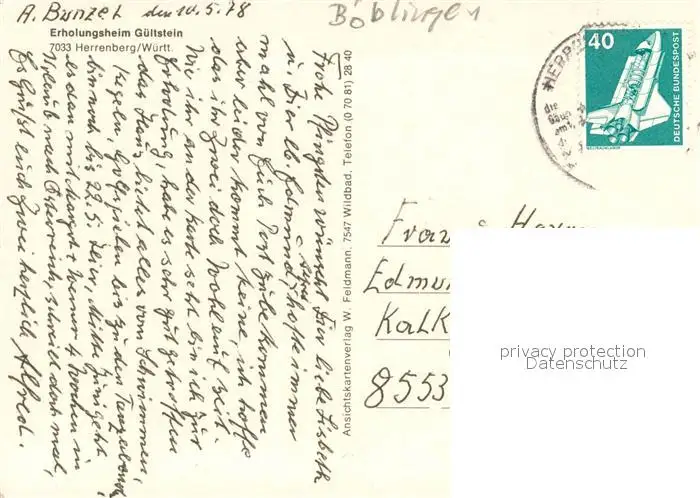 A. Bunzel den 10.5.78
Böblingen
Erholungsheim Gültstein
7033 Herrenberg/Württ.
Frohe Pfingsten wünscht Dir liebe Lisbeth
u. Dir lb. Edmund, hoffe immer
mahl von Euch Post zu bekommen
aber leider kommt keine, ich hoffe
das ihr zwei doch wohlauf seit.
Wie ihr an der Karte seht bin ich zur
Erholung, habe es sehr gut getroffen
das Haus bietet alles vom Schwimmen,
Kegeln, bis zu den Tanzabend
bin noch bis 22.5. hier, Mitte Juni geht
es dann mit Margot + Werner 4 Wochen in
Urlaub nach Österreich, schreibt doch mal,
Es grüßt euch zwei herzlich Alfred.
Ansichtskartenverlag W. Feldmann, 7547 Wildbad, Telefon (0 70 81) 28 40
40
DEUTSCHE BUNDESPOST
WELTRAUMLABOR
HERR
die
Edmu
Kalk
8553
privacy protection
Datenschutz